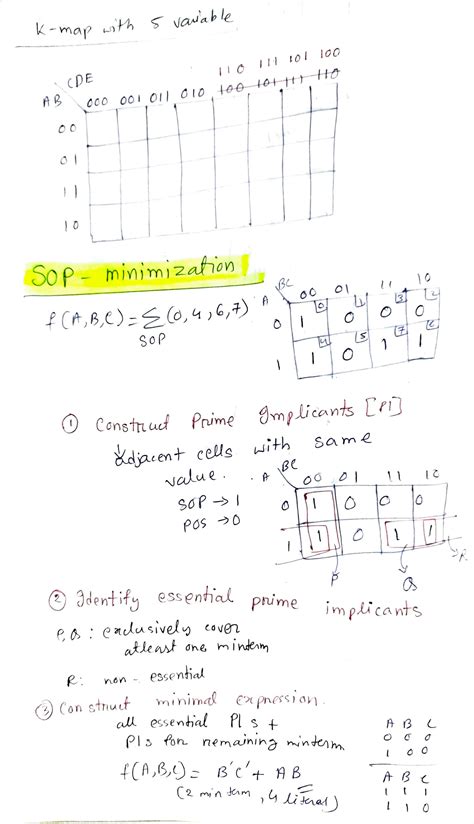 K-map with 5 variable
110 111 101 100
CDE
AB 000 001 011 010 100 101 111 110
00
01
11
10
SOP - minimization
f(A,B,C) = Σ (0,4,6,7)
SOP
A BC 00 01 11 10
0 1 0 0 1 0 3 0 2
1 1 4 0 5 1 7 1 6
① Construct Prime Implicants [PI]
adjacent cells with same
value.
SOP → 1
POS → 0
A BC 00 01 11 10
0 1 0 0 0
1 1 0 1 1
P Q R
② Identify essential prime implicants
P, Q : exclusively cover
atleast one minterm
R: non-essential
③ Construct minimal expression.
all essential PIs +
PIs for remaining minterm
f(A,B,C) = B'C' + AB
(2 min term, 4 literal)
A B C
0 0 0
1 0 0
A B C
1 1 1
1 1 0